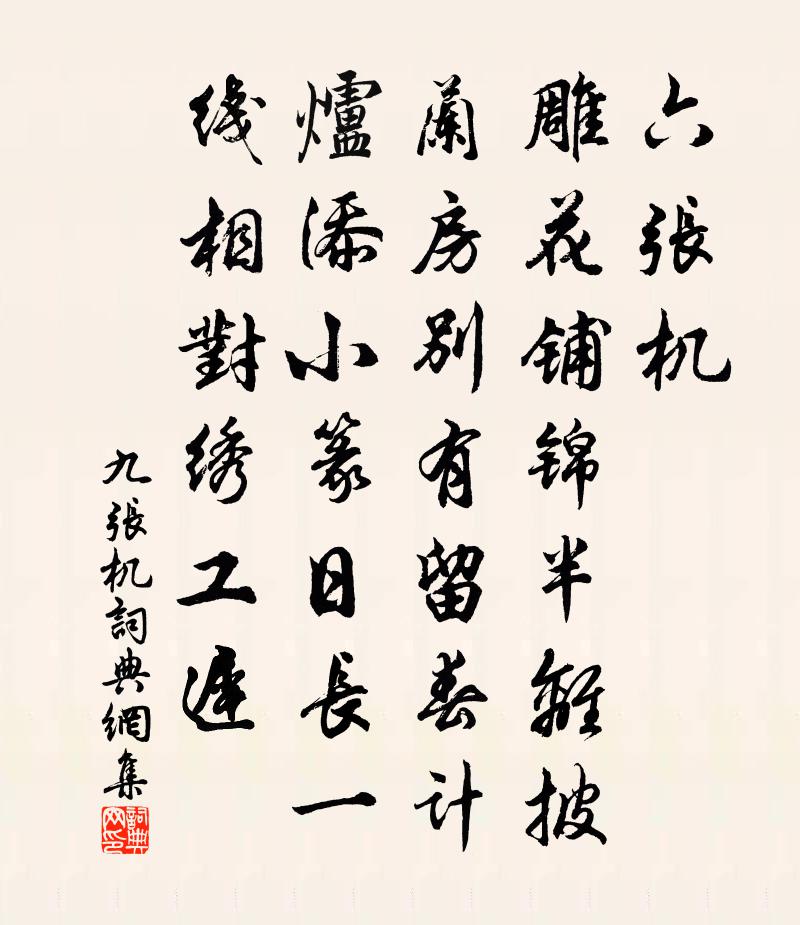 六張机
雕花铺锦半離披
蘭房別有留春计
爐添小篆日長一
线相對绣工遲
九張机詞典網集
詞典网印